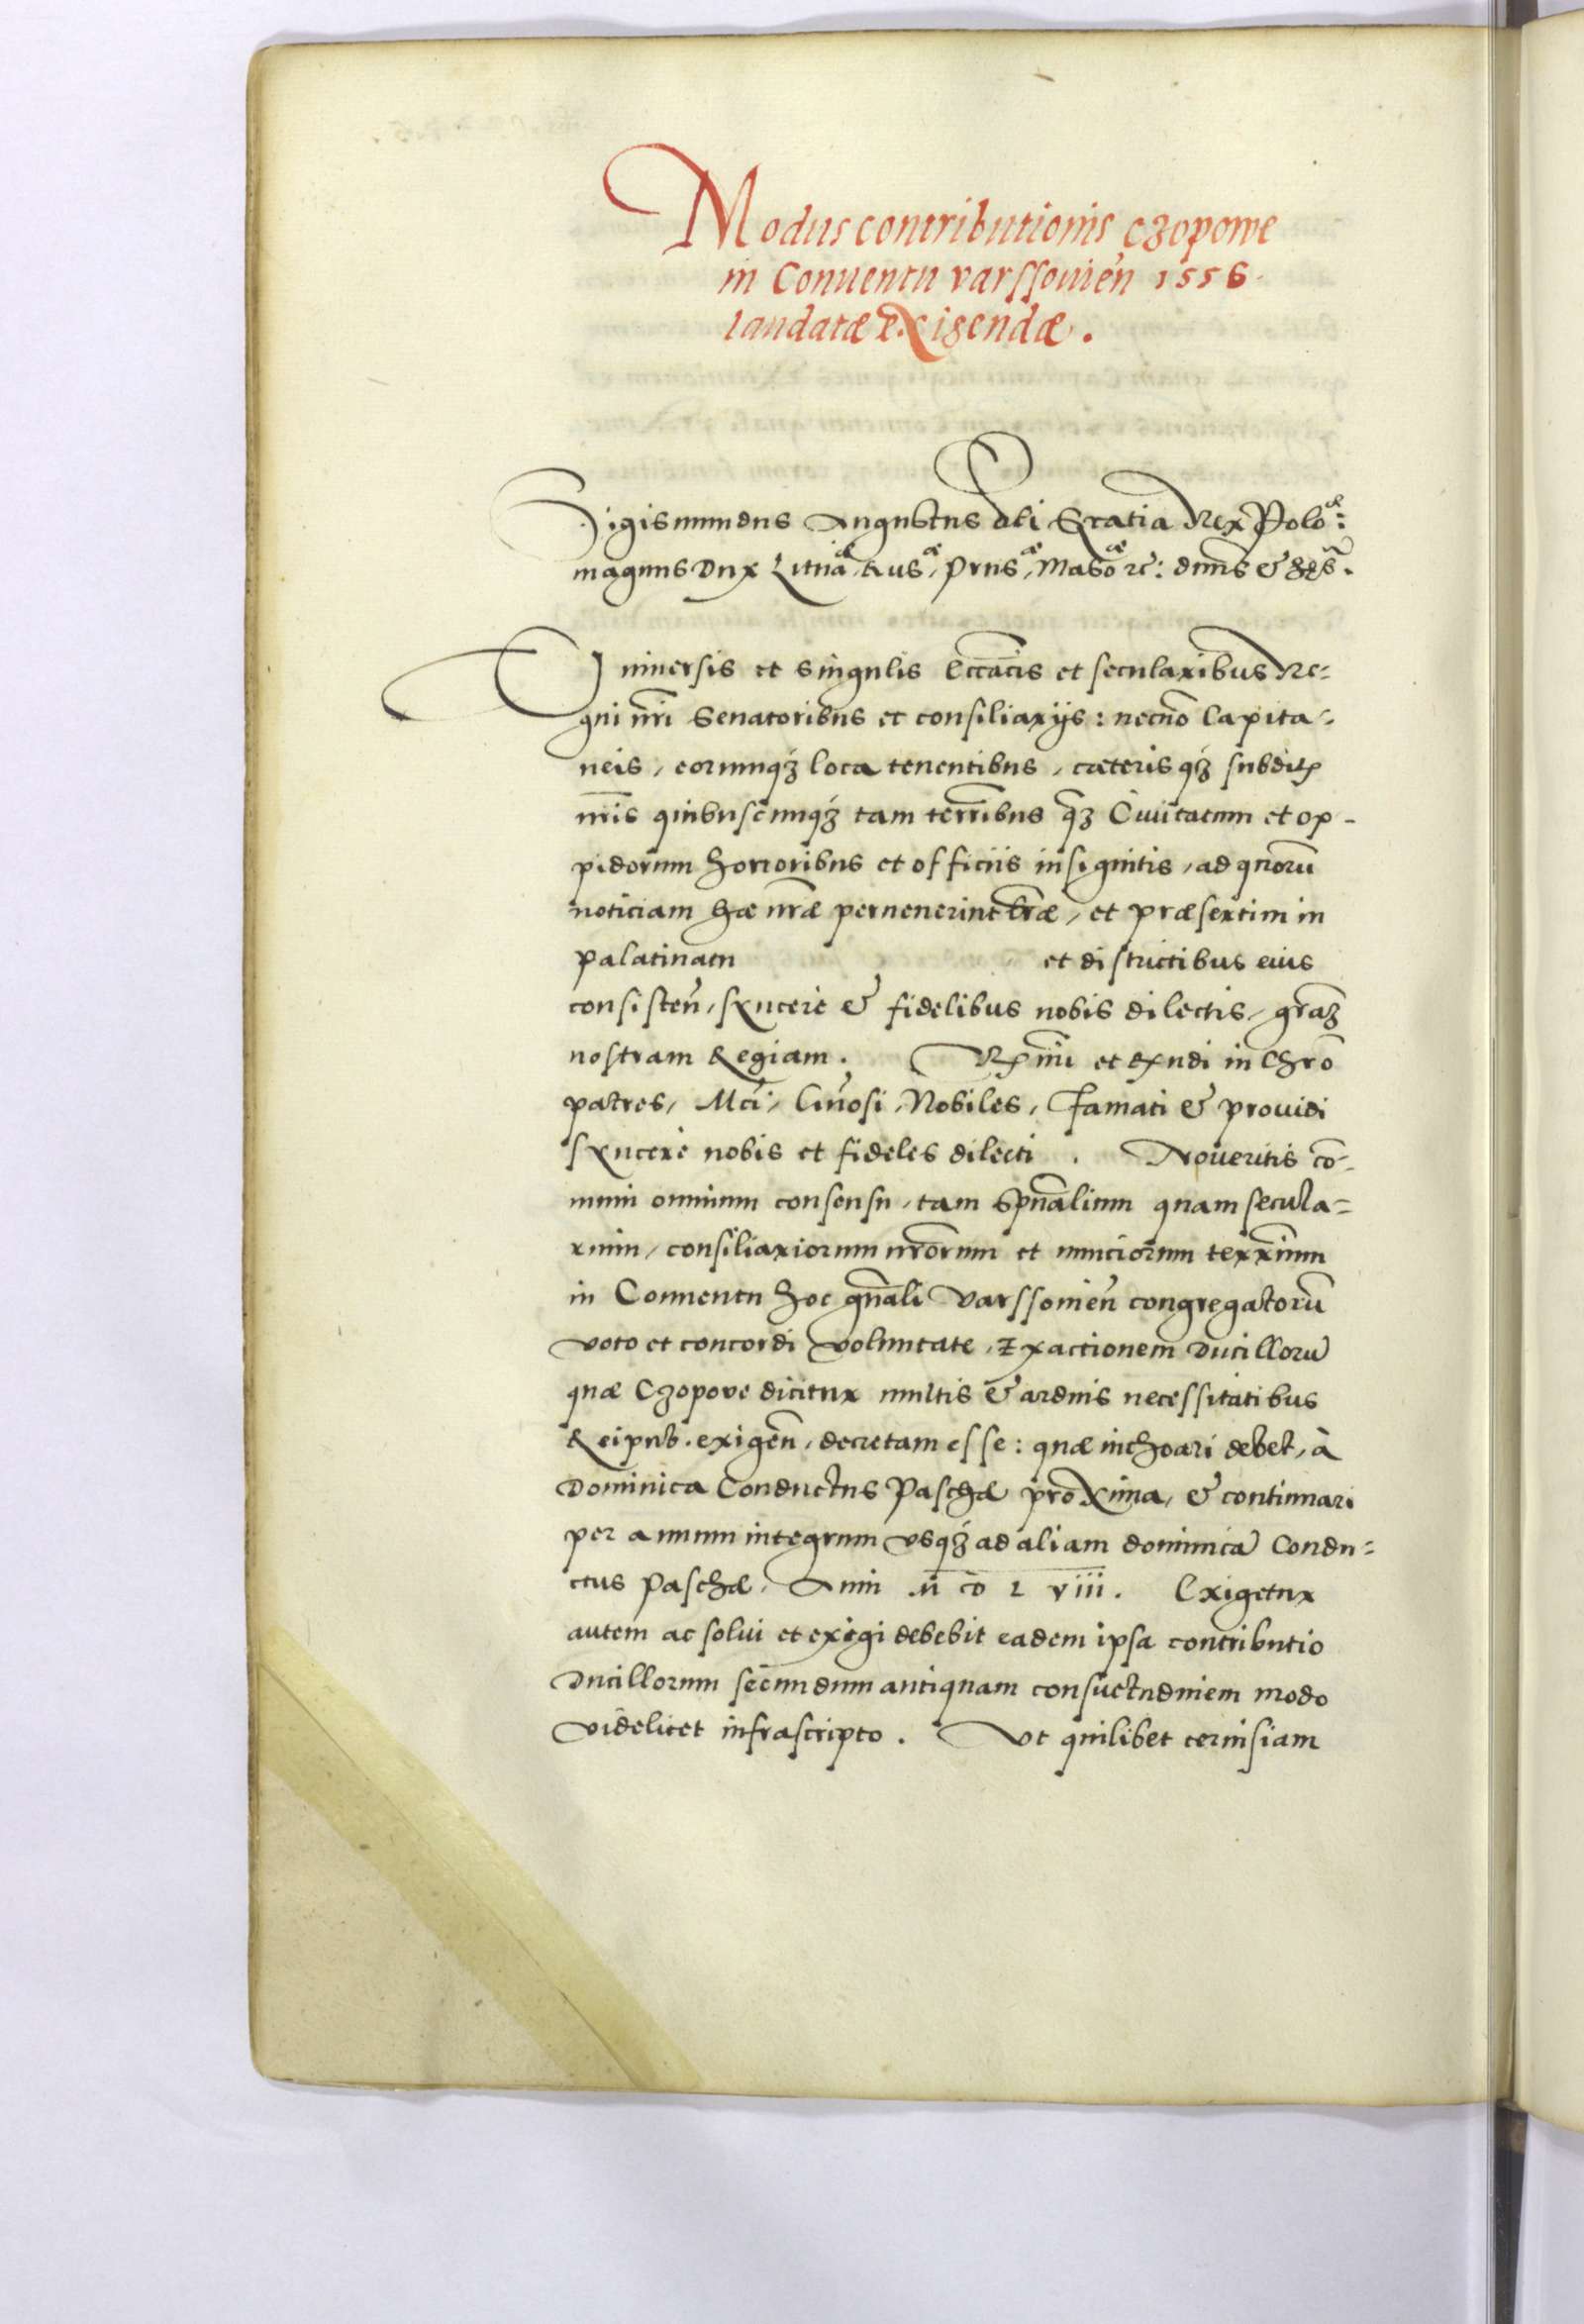 Modus contributionis czopowe
in Conuentu varssouień 1556.
laudatæ exigendæ.
Sigismundus Augustus dei Gratia Rex Poloæ:
magnus Dux Lituaæ, Rusæ, Prusæ, Masoæ zc: dnns & hęs.
Vniuersis et singulis Eccãcis et secularibus Re=
gni nri Senatoribus et consiliarijs: necnõ Capita=
neis, eorumqꝫ loca tenentibus, cæterisqꝫ subditꝭ
nris quibuscunqꝫ tam terribus qꝫ Ciuitatum et op-
pidorum honoribus et officiis insignitis, ad quorũ
noticiam hæ nræ peruenerint lræ, et præsertim in
palatinatu et districtibus eius
consisteñ, syncere & fidelibus nobis dilectis, graꝫ
nostram Regiam. Rꝭmi et Rꝭndi in Chro
patres, Mci, Gnosi, Nobiles, Famati & prouidi
syncere nobis et fideles dilecti. Noueritis cõ=
muni omnium consensu, tam spũalium quam secula=
rium, consiliariorum nrorum et nunciorum terrium
in Conuentu hoc gnãli Varssouień congregatorũ
voto et concordi voluntate, Exactionem Ducillorũ
quæ Czopove dicitur multis & arduis necessitatibus
Reipub. exigeñ, decretam esse: quæ inchoari debet, à
Dominica Conductus Paschæ proxima, & continuari
per annum integrum vsqꝫ ad aliam dominicã Condu=
ctus Paschæ, Anni .M CD L VIII. Exigetur
autem ac solui et exigi debebit eadem ipsa contributio
Ducillorum secundum antiquam consuetudinem modo
videlicet infrascripto. Vt quilibet ceruisiam